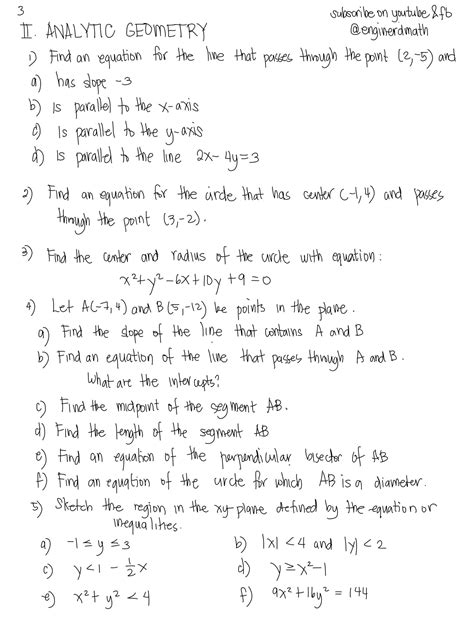 3
subscribe on youtube & fb
II. ANALYTIC GEOMETRY
@enginerdmath
1) Find an equation for the line that passes through the point (2,-5) and
a) has slope -3
b) is parallel to the x-axis
c) is parallel to the y-axis
d) is parallel to the line 2x - 4y = 3
2) Find an equation for the circle that has center (-1,4) and passes
through the point (3,-2).
3) Find the center and radius of the circle with equation:
x² + y² - 6x + 10y + 9 = 0
4) Let A(-7,4) and B(5,-12) be points in the plane.
a) Find the slope of the line that contains A and B
b) Find an equation of the line that passes through A and B.
What are the intercepts?
c) Find the midpoint of the segment AB.
d) Find the length of the segment AB
e) Find an equation of the perpendicular bisector of AB
f) Find an equation of the circle for which AB is a diameter.
5) Sketch the region in the xy-plane defined by the equation or
inequalities.
a) -1 ≤ y ≤ 3
b) |x| < 4 and |y| < 2
c) y < 1 - 1/2 x
d) y ≥ x² - 1
e) x² + y² < 4
f) 9x² + 16y² = 144